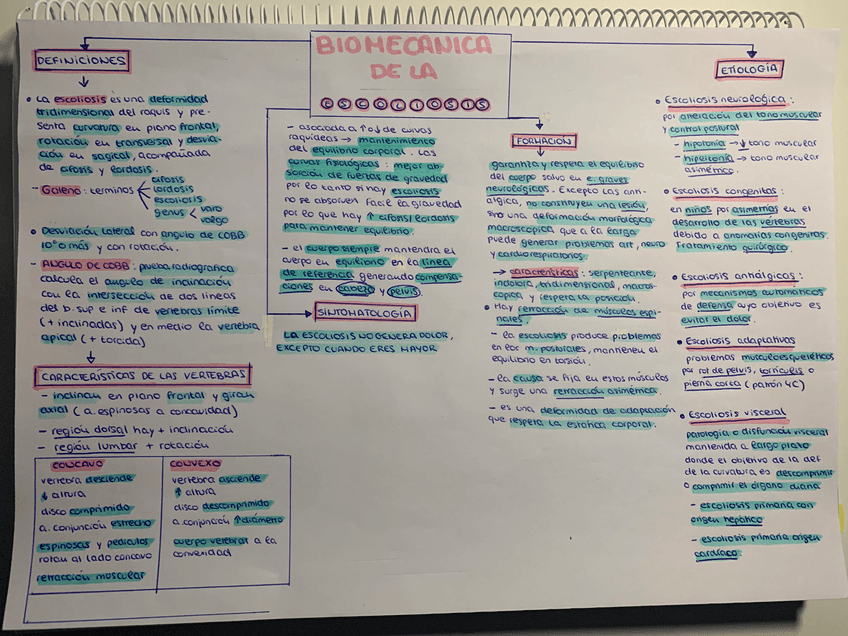 BIOMECANICA
DE LA
ESCOLIOSIS
DEFINICIONES
• La escoliosis es una deformidad
tridimensional del raquis y pre-
senta curvatura en plano frontal,
rotación en transversal y desvia-
ción en sagital, acompañada
de cifosis y lordosis.
- Galeno: terminos
cifosis
lordosis
escoliosis
genus
varo
valgo
• Desviación lateral con angulo de COBB
10° o más y con rotación.
- ANGULO DE COBB: prueba radiografica
calcula el angulo de inclinación
con la intersección de dos lineas
del b. sup e inf de vertebras limite
(+ inclinadas) y en medio la vertebra
apical (+ torcida)
CARACTERÍSTICAS DE LAS VERTEBRAS
- inclinan en plano frontal y giran
axial (a. espinosas a concavidad)
- región dorsal hay + inclinación
- región lumbar + rotación
CONCAVO
vertebra desciende
↓ altura
disco comprimido
a. conjunción estrecho
espinosas y pediculos
rotan al lado concavo
retracción muscular
CONVEXO
vertebra asciende
↑ altura
disco descomprimido
a. conjunción ↑ diámetro
cuerpo vertebral a la
convexidad
- asociada a ↑ o ↓ de curvas
raquideas → mantenimiento
del equilibrio corporal. Las
curvas fisiológicas: mejor ab-
sorción de fuertas de gravedad
por lo tanto si hay escoliosis
no se absorven facil la gravedad
por lo que hay ↑ cifosis/lordosis
para mantener equilibrio.
- el cuerpo siempre mantendra el
cuerpo en equilibrio en la linea
de referencia generando compensa-
ciones en cabeza y pelvis.
SINTOMATOLOGÍA
LA ESCOLIOSIS NO GENERA DOLOR,
EXCEPTO CUANDO ERES MAYOR
FORMACIÓN
garantiza y respeta el equilibrio
del cuerpo salvo en e. graves
neurológicas. Excepto las anti-
álgica, no construyen una lesión,
sino una deformación morfológica
macroscopica que a la larga
puede generar problemas art, neuro
y cardiorespiratorios.
→ características: serpenteante,
indolora, tridimensional, macros-
copica y respeta la posición.
• Hay retracción de músculos espi-
nales.
- la escoliosis produce problemas
en los m. posturales, mantienen el
equilibrio en torsión.
- la causa se fija en estos músculos
y surge una retracción asimétrica.
- es una deformidad de adaptación
que respeta la estatica corporal.
ETIOLOGÍA
• Escoliosis neurológica:
por alteración del tono muscular
y control postural
- hipotonia → ↓ tono muscular
- hipertonia → tono muscular
asimétrico.
• Escoliosis congenitas:
en niños por asimetrias en el
desarrollo de las vértebras
debido a anomalias congenitas.
Tratamiento quirúrgico.
• Escoliosis antiálgicas:
por mecanismos automaticos
de defensa cuyo objetivo es
evitar el dolor.
• Escoliosis adaptativas
problemas musculoesqueléticos
por rot de pelvis, torticulis o
pierna corta (patrón 4C)
• Escoliosis visceral
patología o disfunción visceral
mantenida a largo plazo
donde el objetivo de la def
de la curvatura es descomprimir
o comprimir el órgano diana
- escoliosis primaria con
origen hepático
- escoliosis primaria origen
cardíaco.